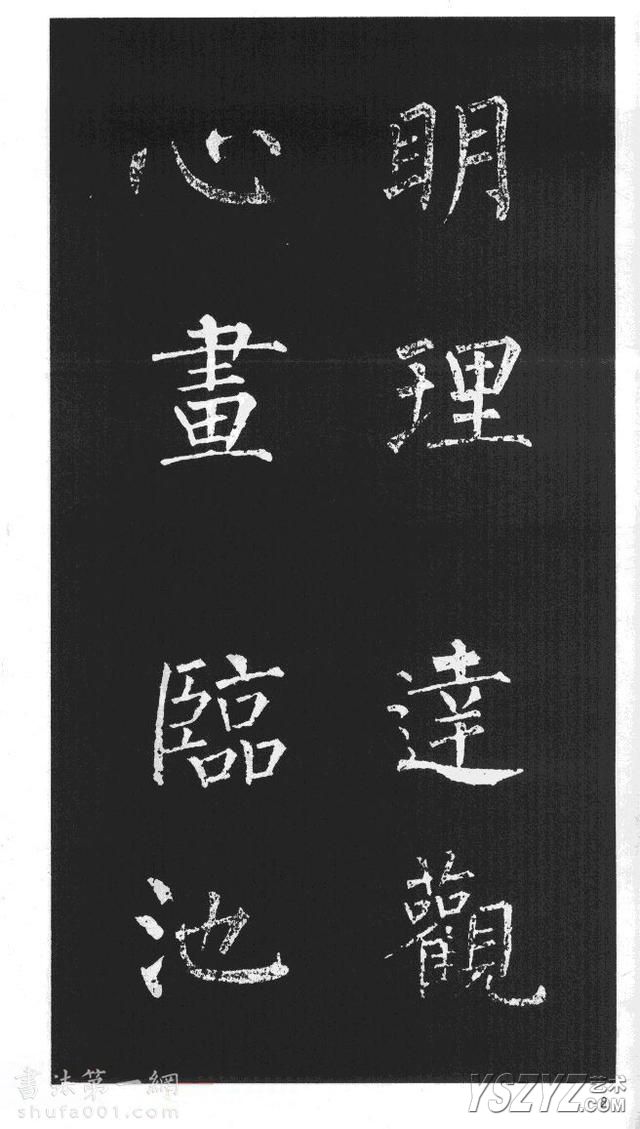 明理達觀
心畫臨池
書法第一網
shufa001.com
YSZYZ艺术
.COM